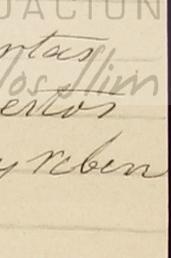 DACIÓN
ntas
los Slim
ertos
y reben